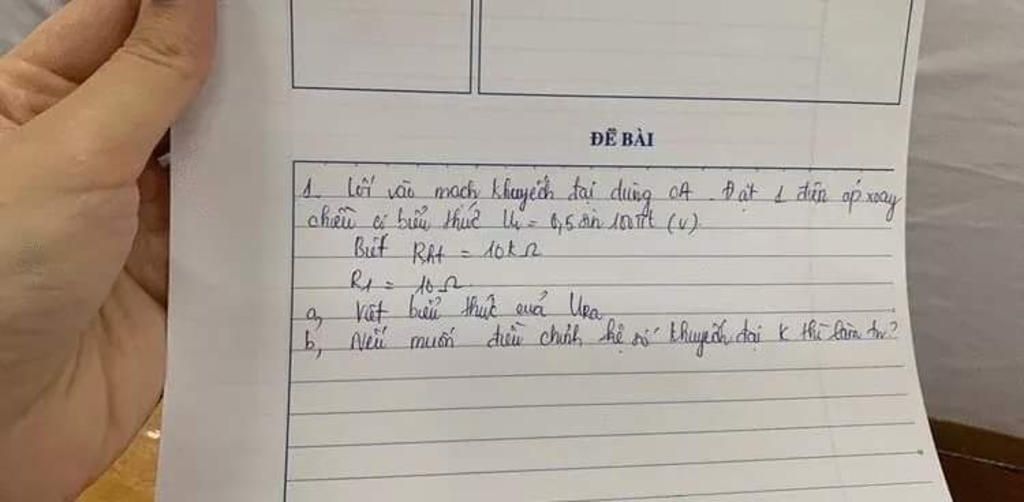 ĐỀ BÀI
1. Lối vào mạch khuyếch đại dùng OA. Đặt 1 điện áp xoay
chiều có biểu thức U₁ = 0,5 sin 100πt (V)
Biết Rht = 10kΩ
R1 = 10Ω
a, Viết biểu thức của Ura
b, Nếu muốn điều chỉnh hệ số khuyếch đại K thì làm tn?